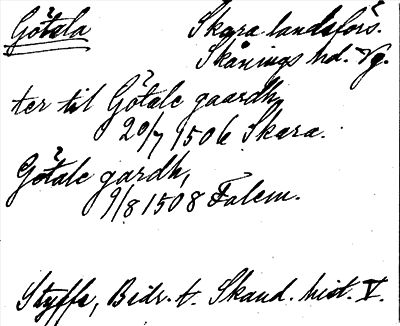 Götala Skara landsförs.
Skånings hd. Vg.
ter til Götale gaardh,
20/7 1506 Skara.
Götale gardh,
9/8 1508 Falem.
Styffe, Bidr. t. Skand. hist. V.